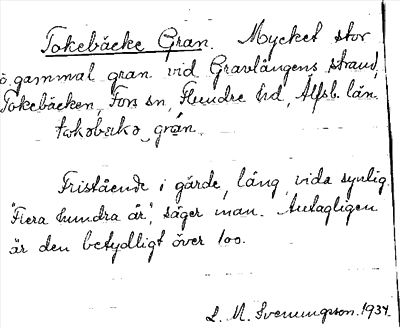 Tokebäcke Gran. Mycket stor
o. gammal gran vid Gravlångens strand,
Tokebäcken, Fors sn, Flundre hd, Älfsb. län.
tokəbækə grán.
Fristående i gärde, lång, vida synlig.
"Flera hundra år", säger man. Antagligen
är den betydligt över 100.
L. M. Svenungsson. 1934.